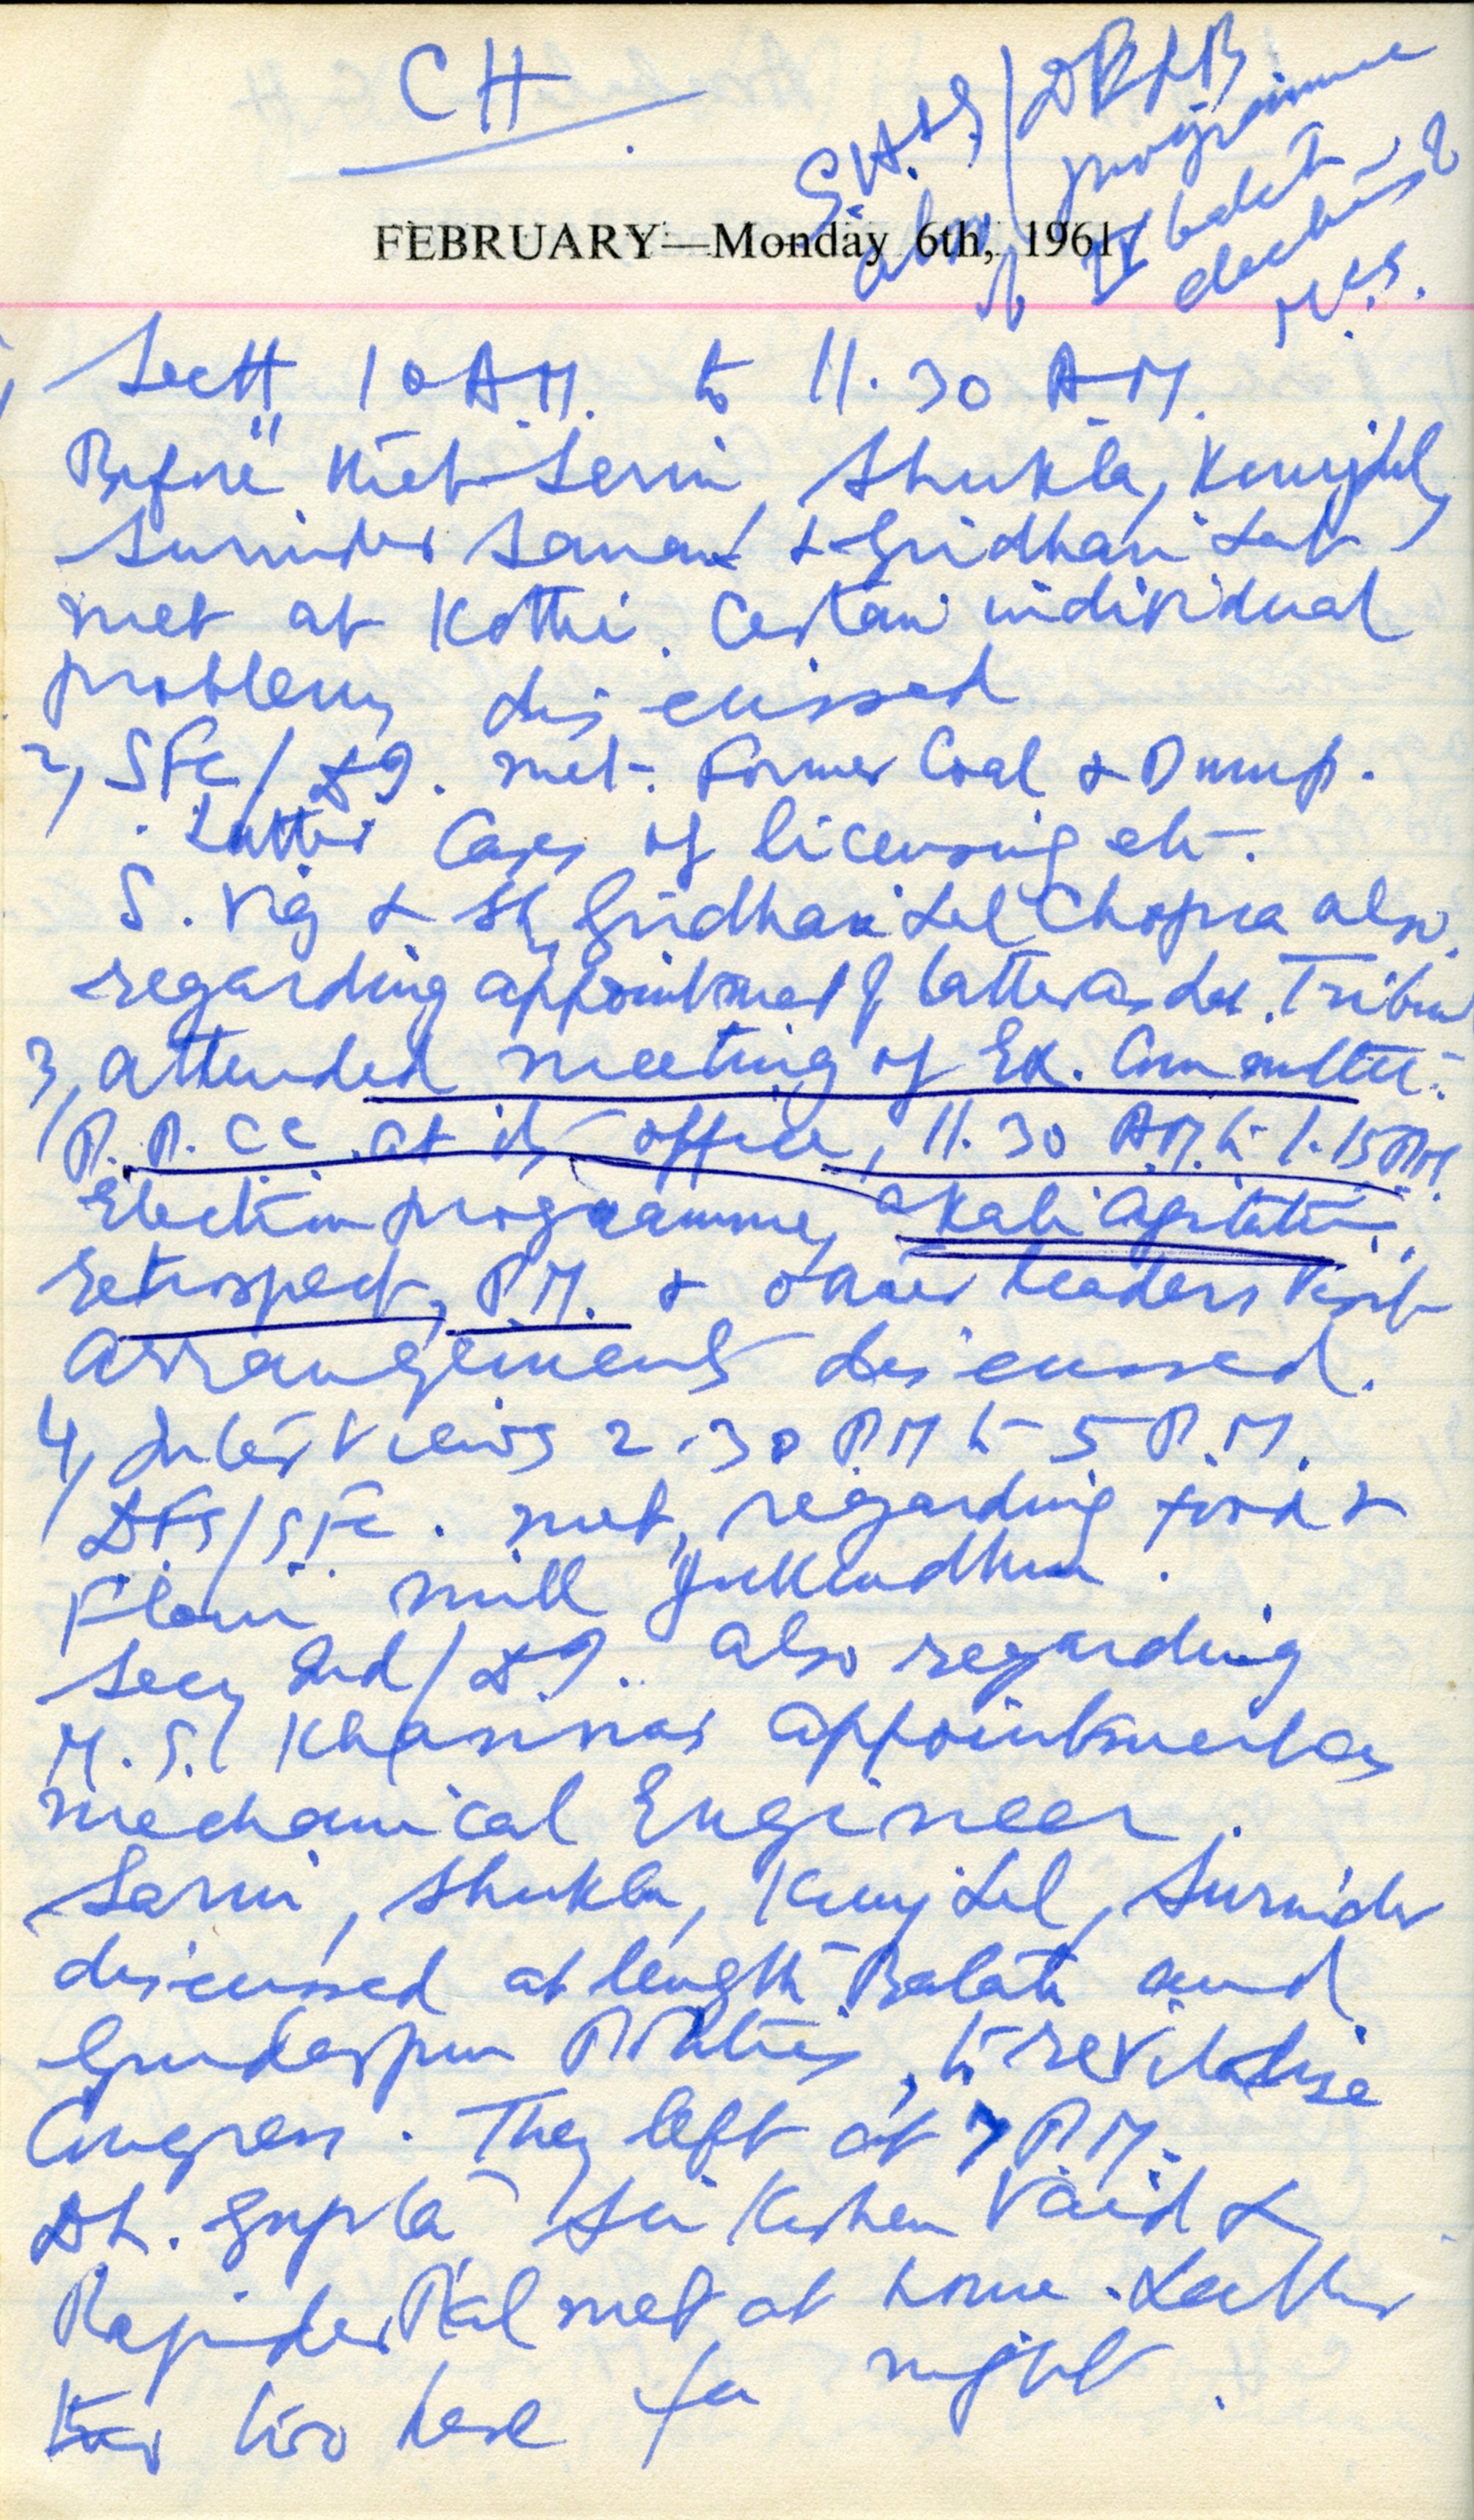 CH
DRHB
programme
also
of
M.S.
FEBRUARY—Monday 6th, 1961
1, Sectt 10 A.M. to 11.30 A.M.
Before" Shukla, Kunjlal,
Surinder & Gridhari Lal
met at Kothi. Certain individual
problems discussed
2, SFC/ met. Former Coal & Dump.
Latter Cases of licensing etc.
S. Vig & Sh, Gridhari Lal Chopra also.
regarding appointment of latter as
3, attended meeting of Ex. Committee
P.P.CC. at its office, 11.30 A.M. to 1.15 PM.
Election programme, Akali Agitation
retrospect, P.M. & other leaders Visit
arrangements discussed.
4, Interviews 2.30 P.M to 5 P.M.
DFS/SFC. met, regarding food &
Flour mill
Secy Ind/ also regarding
M.S. Khannas appointment as
mechanical Engineer.
Shukla, Kunj Lal, Surinder
discussed at length Batala and
Gurdaspur Politics, to revitalise
Congress. They left at 7 P.M.
Gupta Sri Kishen Vaid &
Rajinder Pal met at home. Latter
two here for night.